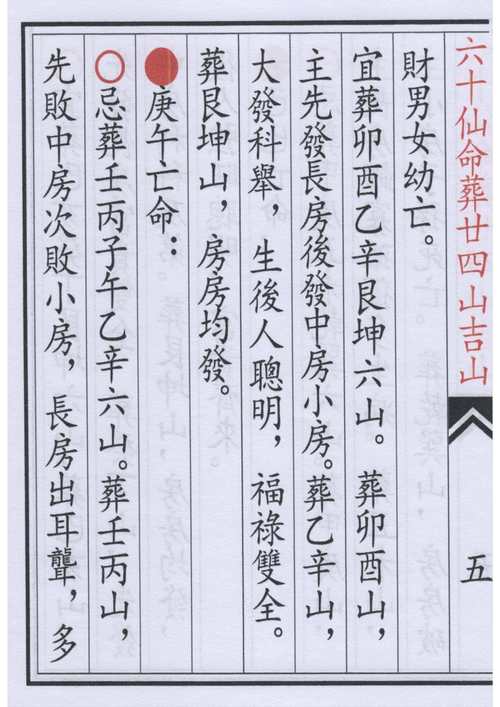 六十仙命葬廿四山吉山
五
財男女幼亡。
宜葬卯酉乙辛艮坤六山。葬卯酉山，
主先發長房後發中房小房。葬乙辛山，
大發科舉，生後人聰明，福祿雙全。
葬艮坤山，房房均發。
●庚午亡命：
○忌葬壬丙子午乙辛六山。葬壬丙山，
先敗中房次敗小房，長房出耳聾，多